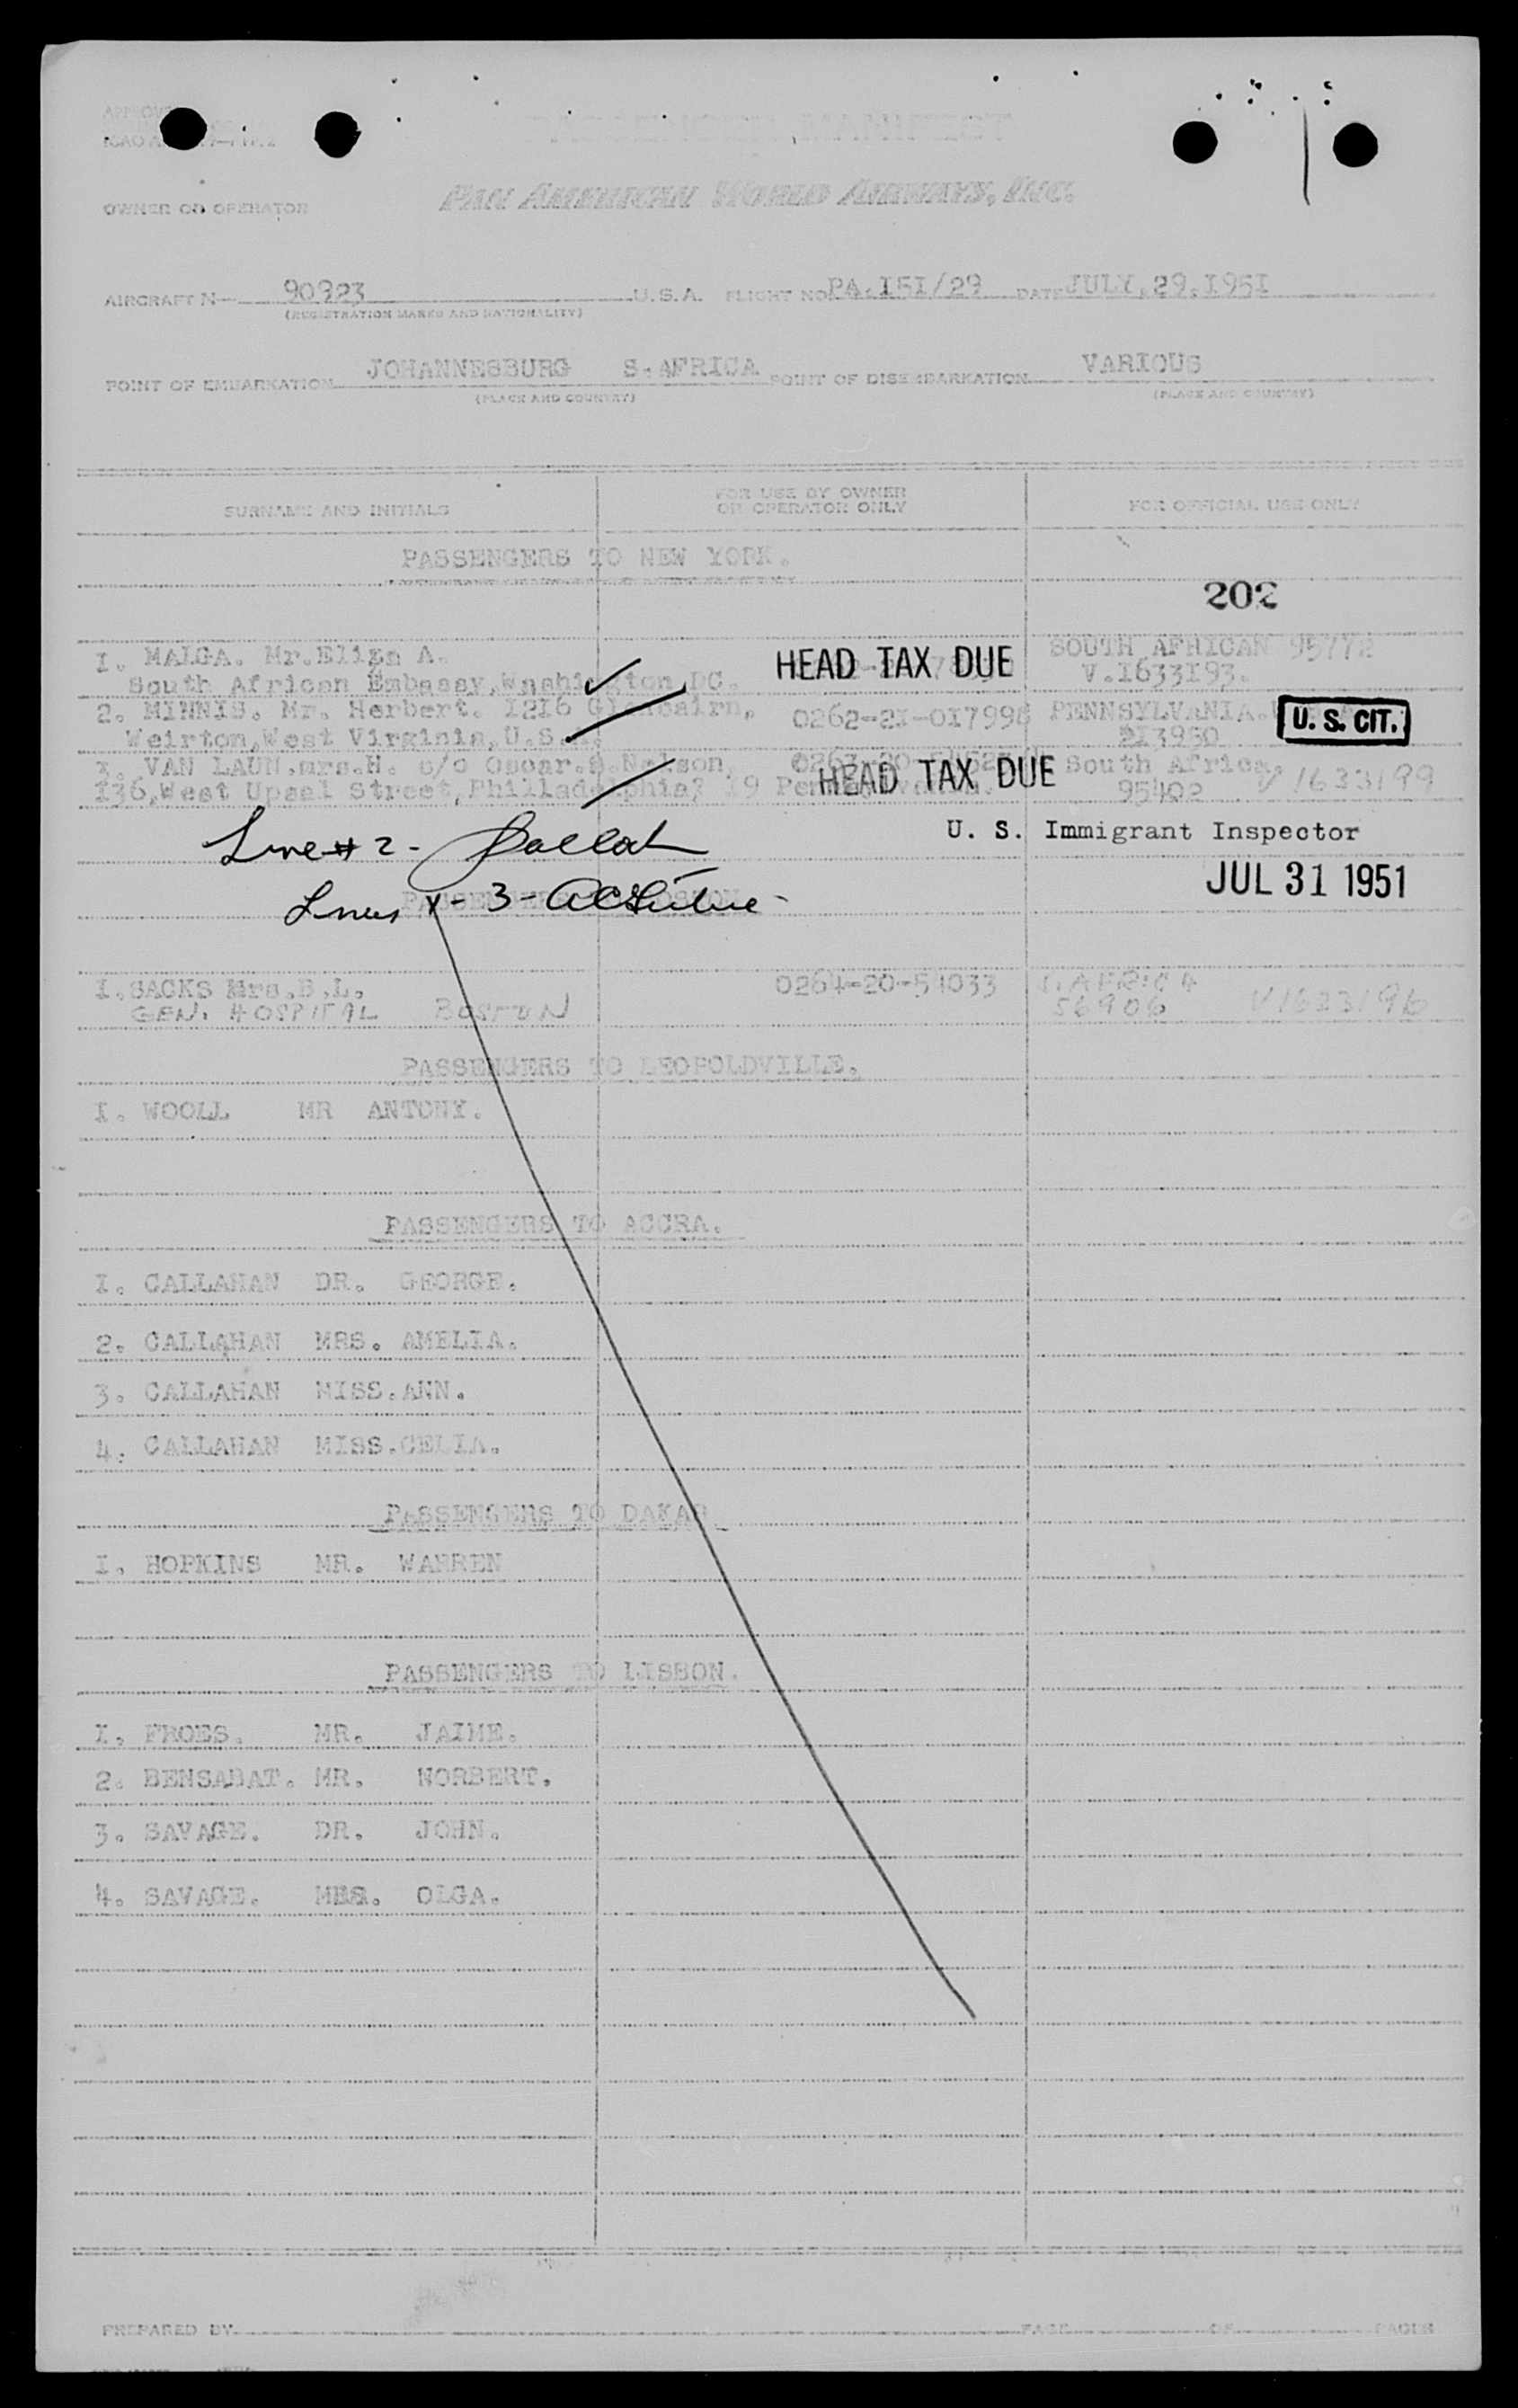 PASSENGER MANIFEST
OWNER OR OPERATOR PAN AMERICAN WORLD AIRWAYS, INC.
AIRCRAFT N 90923 U.S.A. FLIGHT NO PA.151/29 DATE JULY,29,1951
(REGISTRATION MARKS AND NATIONALITY)
POINT OF EMBARKATION JOHANNESBURG S.AFRICA POINT OF DISEMBARKATION VARIOUS
(PLACE AND COUNTRY) (PLACE AND COUNTRY)
SURNAME AND INITIALS FOR USE BY OWNER OR OPERATOR ONLY FOR OFFICIAL USE ONLY
PASSENGERS TO NEW YORK.
202
I. MALGA. Mr. A. HEAD TAX DUE SOUTH AFRICAN 95772
South African Embassy, Washington DC. V.1633193.
2. MINNIS. Mr. Herbert. 1216 Glencairn, 0262-21-017998 PENNSYLVANIA. U. S. CIT.
Weirton, West Virginia, U.S.A. 213950
3. VAN LAUN. mrs. H. c/o Oscar.S. Nelson, HEAD TAX DUE South Africa.
136, West Upsal Street, Philladelphia? 19 95402 V1633199
Line # 2 - U. S. Immigrant Inspector
Lines - 3 - JUL 31 1951
I. SACKS Mrs.B.L. 0264-20-54033 S.AFRICA
GEN. HOSPITAL BOSTON 56906 V1633196
PASSENGERS TO LEOPOLDVILLE.
I. WOOLL MR ANTONY.
PASSENGERS TO ACCRA.
I. CALLAHAN DR. GEORGE.
2. CALLAHAN MRS. AMELIA.
3. CALLAHAN MISS. ANN.
4. CALLAHAN MISS. CELIA.
PASSENGERS TO DAKAR
I. HOPKINS MR. WARREN
PASSENGERS TO LISBON.
I. FROES. MR. JAIME.
2. BENSABAT. MR. NORBERT.
3. SAVAGE. DR. JOHN.
4. SAVAGE. MRS. OLGA.
PREPARED BY PAGE OF PAGES